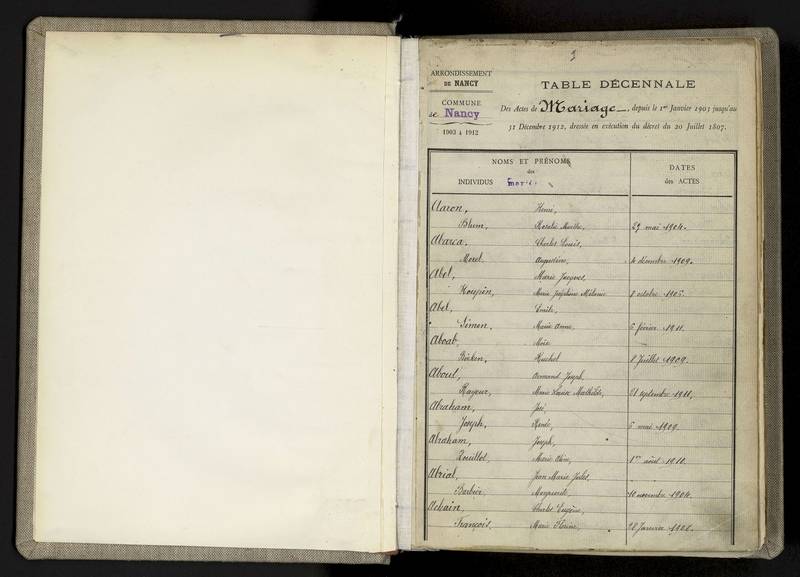 2
ARRONDISSEMENT
DE NANCY
COMMUNE
de Nancy
1903 à 1912
TABLE DÉCENNALE
Des Actes de Mariage, depuis le 1er Janvier 1903 jusqu'au
31 Décembre 1912, dressée en exécution du décret du 20 Juillet 1807.
NOMS ET PRÉNOMS
des
INDIVIDUS mariés
DATES
des ACTES
Aaron, Henri,
Blum, Rosalie Marthe, 29 mai 1904.
Abarca, Charles Louis,
Morel, Augustine, 4 décembre 1909.
Abel, Marie Jacques,
Houpin, Marie Joséphine Mélanie 8 octobre 1905.
Abel, Émile,
Simon, Marie Anne, 6 février 1911.
Aboab, Moïse
Rachel 8 Juillet 1909.
Aboul, Armand Joseph,
Rayeur, Marie Louise Mathilde, 21 septembre 1911,
Abraham,
Joseph, Renée, 5 mai 1909.
Abraham, Joseph,
Rouillot, Marie 1er août 1910.
Abrial, Jean Marie Jules,
Barbier, Marguerite, 10 novembre 1904.
Achain, Charles Eugène,
François, Marie 28 Janvier